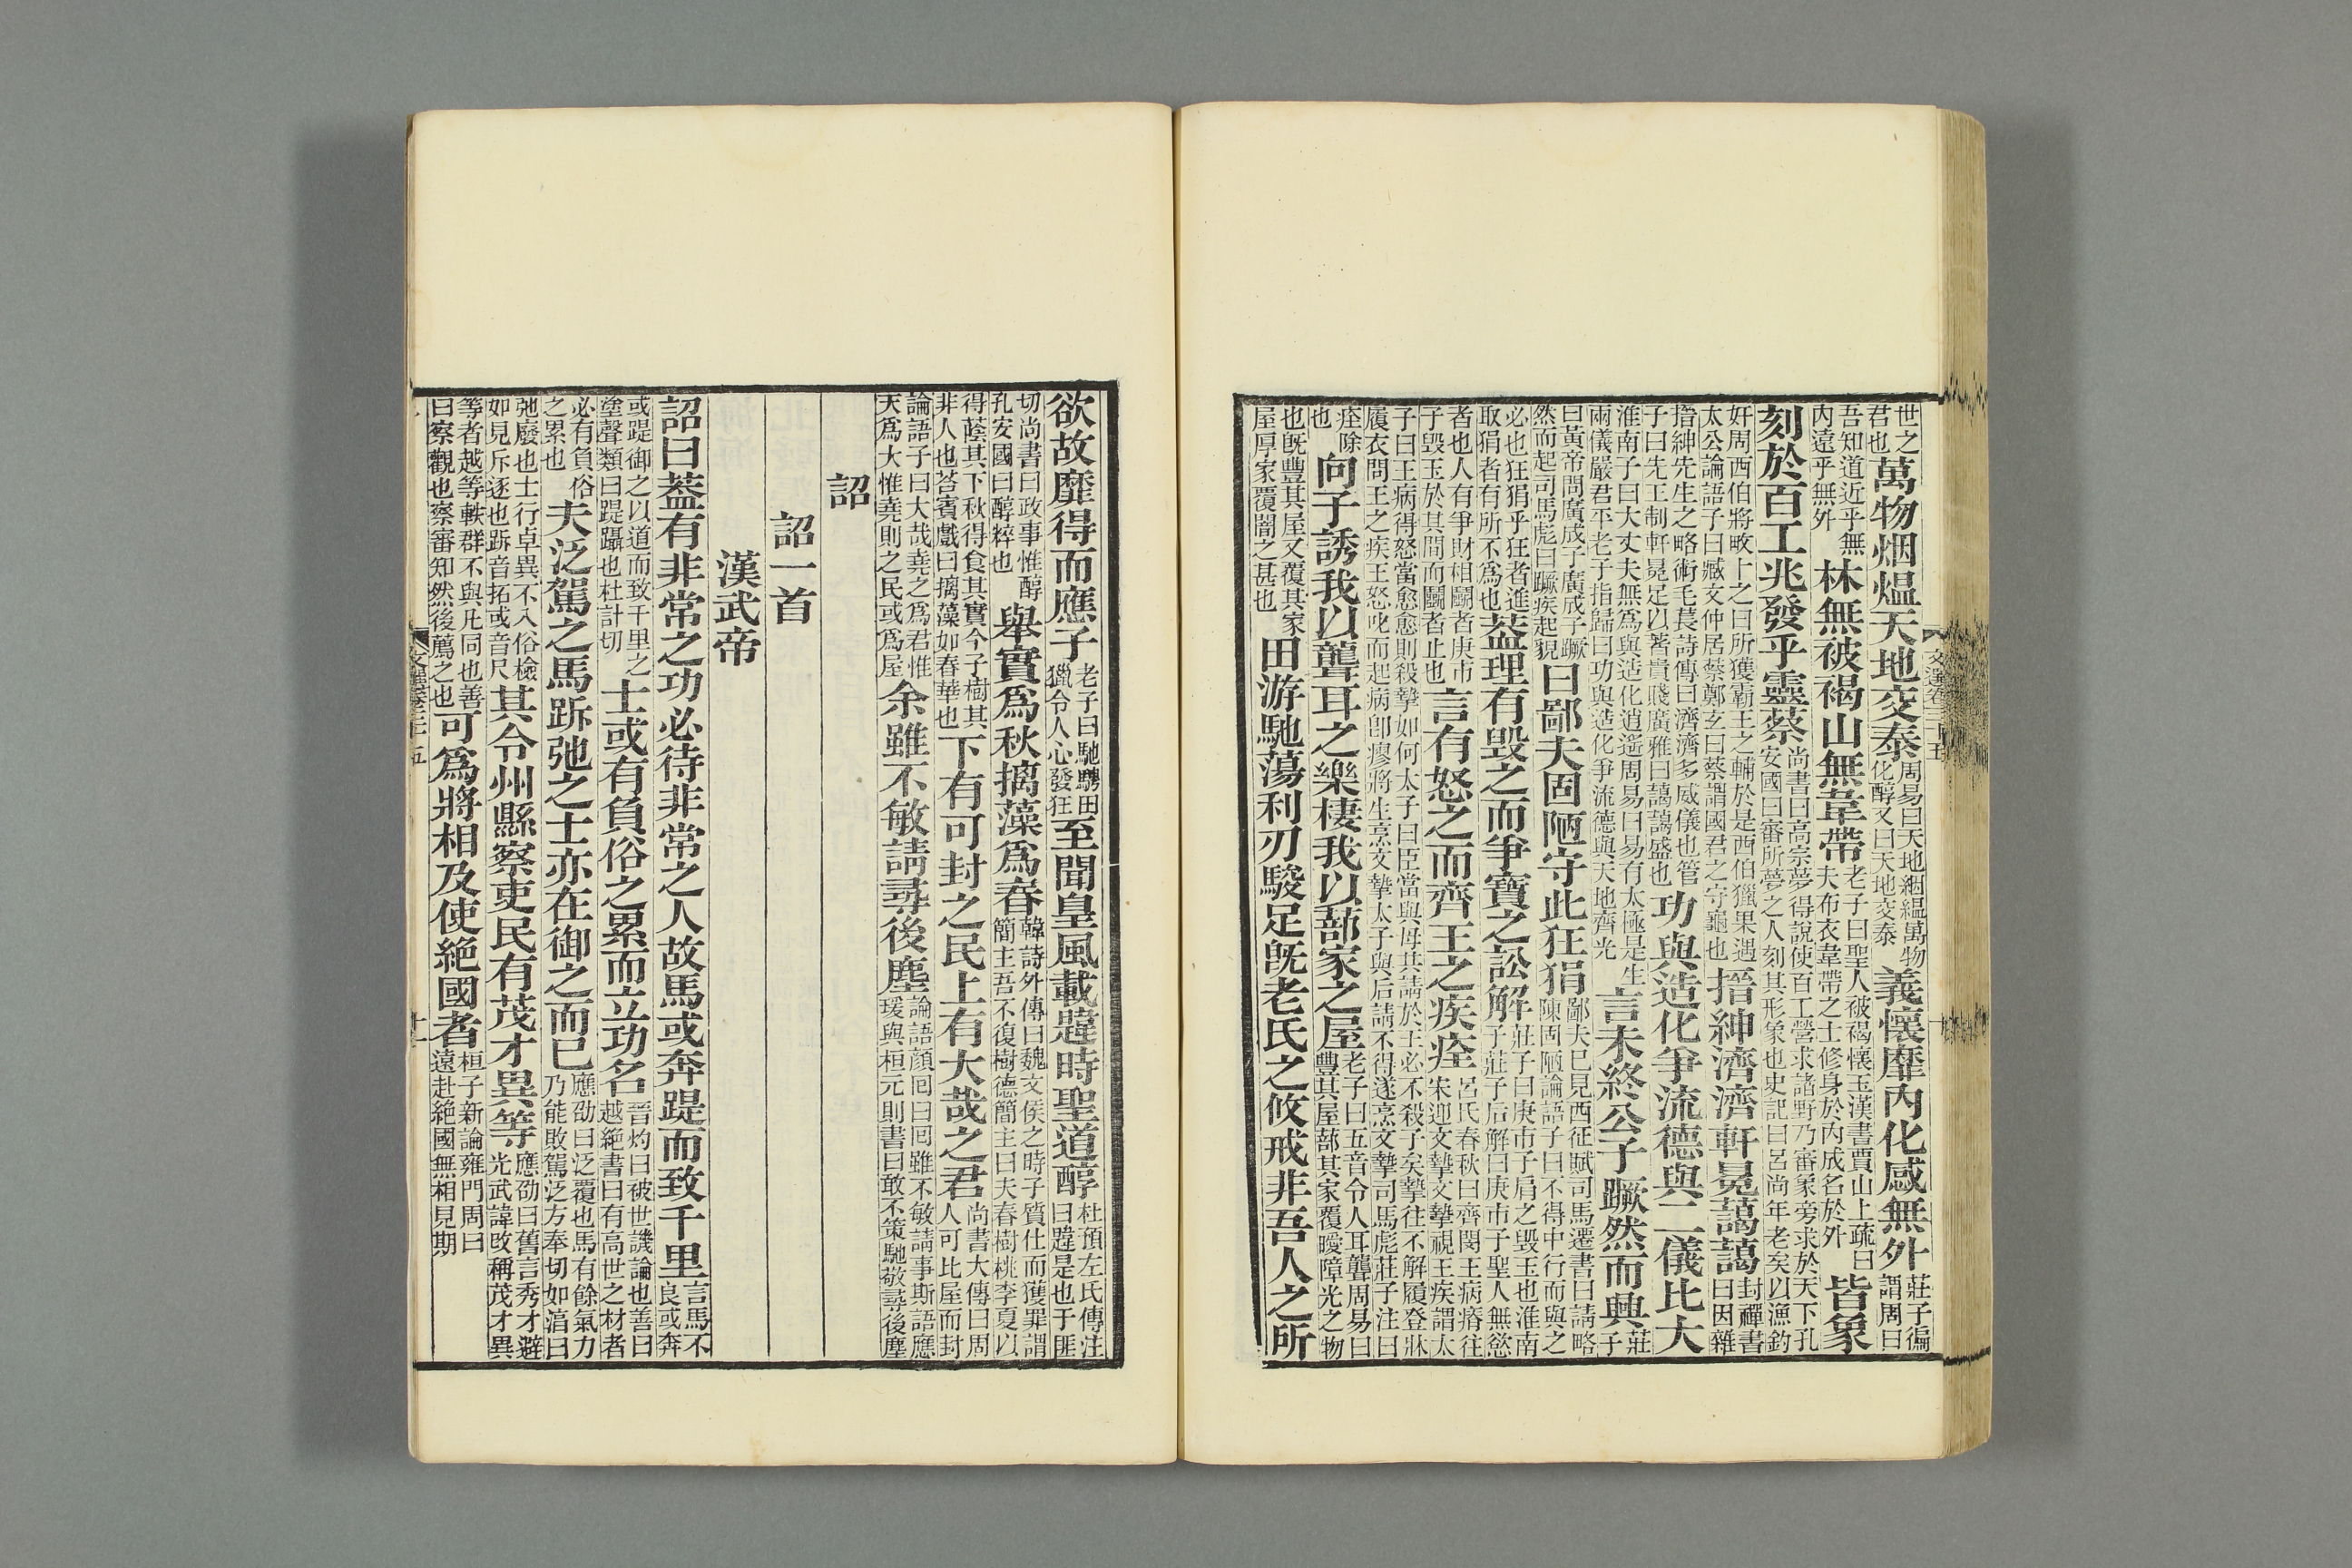 世之君也萬物烟熅天地交泰周易曰天地絪縕萬物化醇又曰天地交泰義懷靡內化感無外莊子徧謂周曰
吾知道近乎無內遠乎無外林無被褐山無韋帶老子曰聖人被褐懷玉漢書賈山上疏曰夫布衣韋帶之士修身於內成名於外皆象
刻於百工兆發乎靈蔡尚書曰高宗夢得說使百工營求諸野乃審象旁求於天下孔安國曰審所夢之人刻其形象也史記曰呂尚年老矣以漁釣
奸周西伯將畋卜之曰所獲霸王之輔於是西伯獵果遇太公論語子曰臧文仲居蔡鄭玄曰蔡謂國君之守龜也搢紳濟濟軒冕藹藹封禪書曰因雜
搢紳先生之略術毛萇詩傳曰濟濟多威儀也管子曰先王制軒冕足以著貴賤廣雅曰藹藹盛也功與造化爭流德與二儀比大
淮南子曰大丈夫無爲與造化逍遙周易曰易有太極是生兩儀嚴君平老子指歸曰功與造化爭流德與天地齊光言未終公子蹶然而興莊子
曰黃帝問廣成子廣成子蹶然而起司馬彪曰蹶疾起貌曰鄙夫固陋守此狂狷鄙夫已見西征賦司馬遷書曰請略陳固陋論語子曰不得中行而與之
必也狂狷乎狂者進取狷者有所不爲也葢理有毀之而爭寶之訟解莊子曰庚市子肩之毀玉也淮南子莊子后解曰庚市子聖人無慾
者也人有爭財相鬭者庚市子毀玉於其間而鬭者止也言有怒之而齊王之疾痊呂氏春秋曰齊閔王病瘠往宋迎文摯文摯視王疾謂太
子曰王病得怒當愈愈則殺摯如何太子曰臣當與母共請於王必不殺子矣摯往不解履登牀履衣問王之疾王怒叱而起病卽瘳將生烹文摯太子與后請不得遂烹文摯司馬彪莊子注曰
痊除也向子誘我以聾耳之樂棲我以蔀家之屋老子曰五音令人耳聾周易曰豐其屋蔀其家覆曖障光之物
也旣豐其屋又覆其家屋厚家覆闇之甚也田游馳蕩利刃駿足旣老氏之攸戒非吾人之所
欲故靡得而應子老子曰馳騁田獵令人心發狂至聞皇風載韙時聖道醇杜預左氏傳注曰韙是也于匪
切尚書曰政事惟醇孔安國曰醇粹也舉實爲秋摛藻爲春韓詩外傳曰魏文侯之時子質仕而獲罪謂簡主吾不復樹德簡主曰夫春樹桃李夏以
得蔭其下秋得食其實今子樹其非人也荅賓戲曰摛藻如春華也下有可封之民上有大哉之君尚書大傳曰周人可比屋而封
論語子曰大哉堯之爲君惟天爲大惟堯則之民或爲屋余雖不敏請尋後塵論語顏回曰回雖不敏請事斯語應瑗與桓元則書曰敢不策馳敬尋後塵
詔
詔一首
漢武帝
詔曰葢有非常之功必待非常之人故馬或奔踶而致千里言馬不良或奔
或踶御之以道而致千里之塗聲類曰踶躡也杜計切士或有負俗之累而立功名晉灼曰被世譏論也善曰越絕書曰有高世之材者
必有負俗之累也夫泛駕之馬跅弛之士亦在御之而已應劭曰泛覆也馬有餘氣力乃能敗駕泛方奉切如淳曰
弛廢也士行卓異不入俗檢如見斥逐也跅音拓或音尺其令州縣察吏民有茂才異等應劭曰舊言秀才避光武諱改稱茂才異
等者越等軼群不與凡同也善曰察觀也察審知然後薦之也可爲將相及使絕國者桓子新論雍門周曰遠赴絕國無相見期